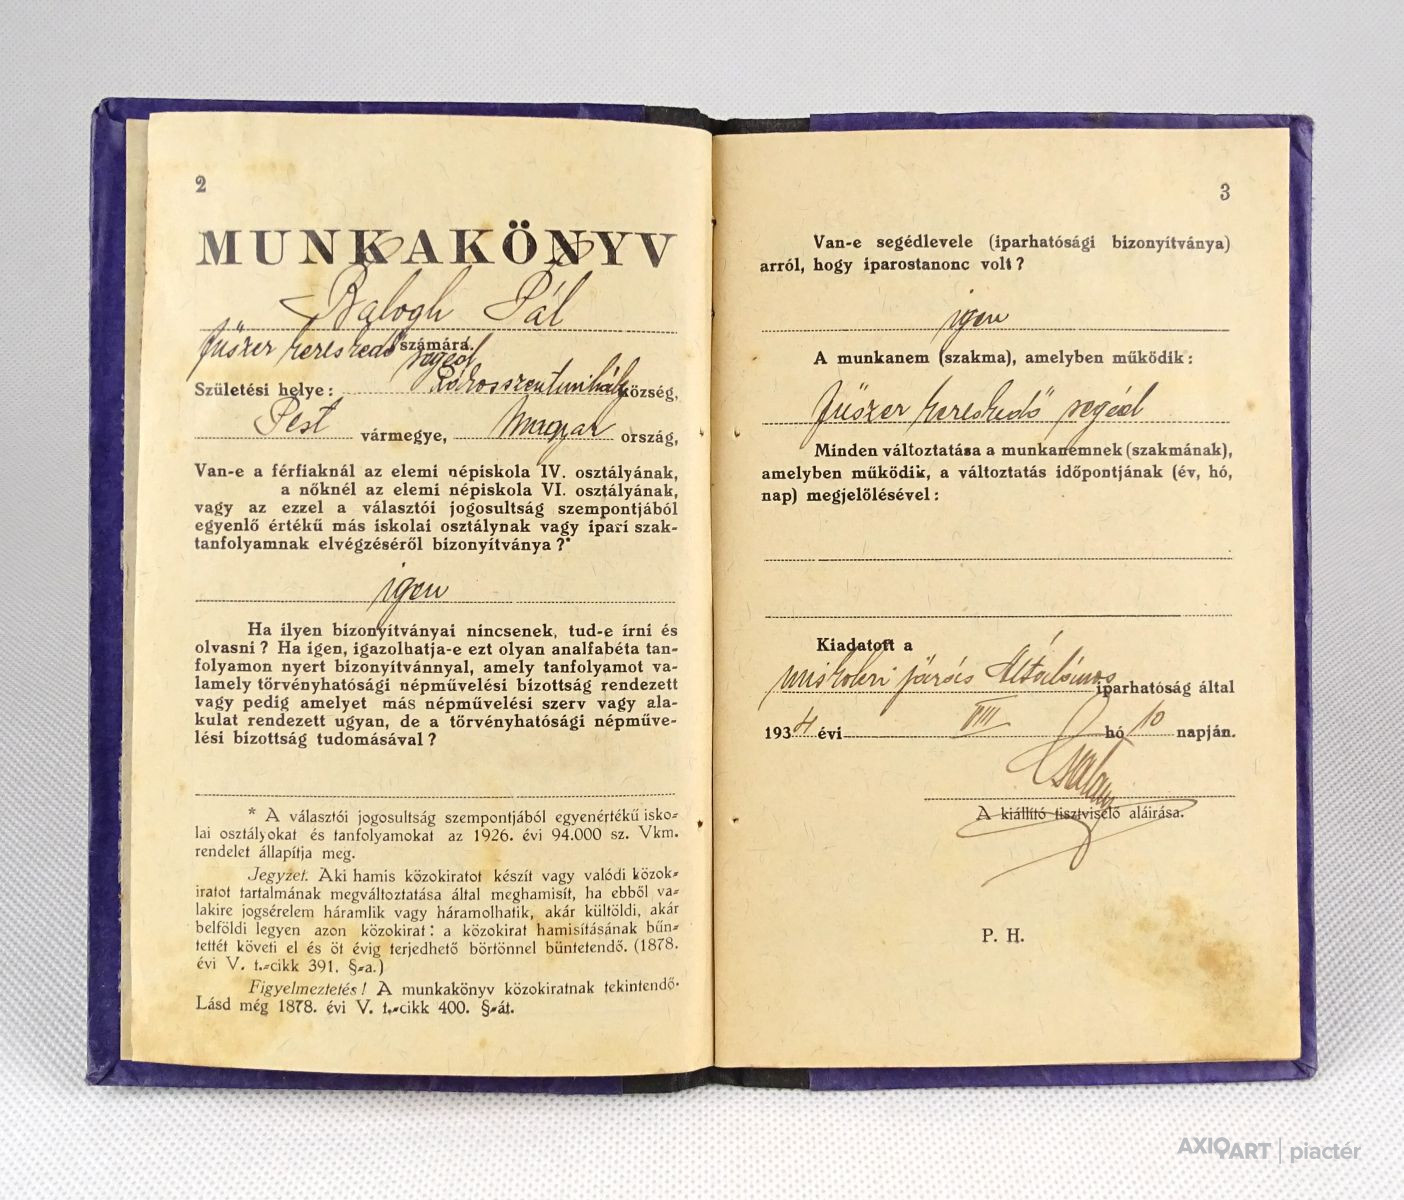 2
MUNKAKÖNYV
Balogh Pál
fűszer kereskedő segéd számára.
Születési helye: község,
Pest vármegye, Magyar ország,
Van-e a férfiaknál az elemi népiskola IV. osztályának,
a nőknél az elemi népiskola VI. osztályának,
vagy az ezzel a választói jogosultság szempontjából
egyenlő értékű más iskolai osztálynak vagy ipari szak-
tanfolyamnak elvégzéséről bizonyítványa?*
igen
Ha ilyen bizonyítványai nincsenek, tud-e írni és
olvasni? Ha igen, igazolhatja-e ezt olyan analfabéta tan-
folyamon nyert bizonyítvánnyal, amely tanfolyamot va-
lamely törvényhatósági népművelési bizottság rendezett
vagy pedig amelyet más népművelési szerv vagy ala-
kulat rendezett ugyan, de a törvényhatósági népműve-
lési bizottság tudomásával?
* A választói jogosultság szempontjából egyenértékű isko-
lai osztályokat és tanfolyamokat az 1926. évi 94.000 sz. Vkm.
rendelet állapítja meg.
Jegyzet. Aki hamis közokiratot készít vagy valódi közok-
iratot tartalmának megváltoztatása által meghamisít, ha ebből va-
lakire jogsérelem háramlik vagy háramolhatik, akár külföldi, akár
belföldi legyen azon közokirat: a közokirat hamisításának bűn-
tettét követi el és öt évig terjedhető börtönnel büntetendő. (1878.
évi V. t.-cikk 391. §-a.)
Figyelmeztetés! A munkakönyv közokiratnak tekintendő.
Lásd még 1878. évi V. t.-cikk 400. §-át.
3
Van-e segédlevele (iparhatósági bizonyítványa)
arról, hogy iparostanonc volt?
igen
A munkanem (szakma), amelyben működik:
fűszer kereskedő segéd
Minden változtatása a munkanemnek (szakmának),
amelyben működik, a változtatás időpontjának (év, hó,
nap) megjelölésével:
Kiadatott a
miskolci járás Általános iparhatóság által
1934 évi VIII hó 10 napján.
A kiállító tisztviselő aláirása.
P. H.
AXIOART | piactér